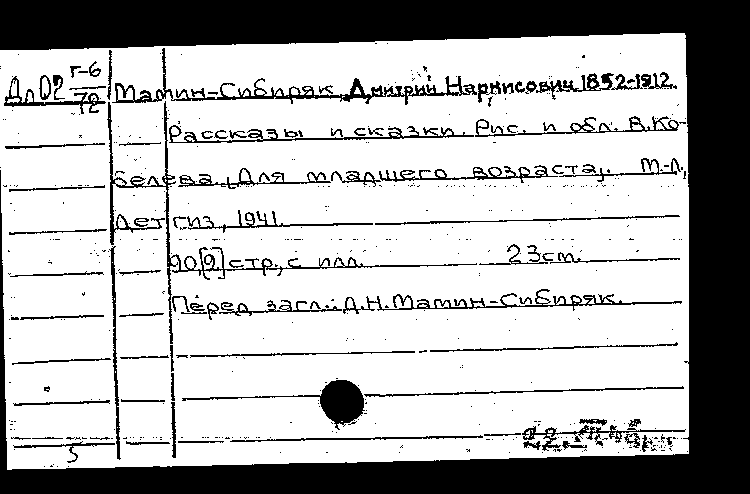 ДлО2 Г-6/72 Мамин-Сибиряк, Дмитрий Наркисович 1852-1912.
Рассказы и сказки. Рис. и обл. В.Ко-
белева. [Для младшего возраста]. М.-Л.,
Детгиз, 1941.
90,[2] стр., с илл. 23 см.
Перед загл.: Д.Н.Мамин-Сибиряк.
5